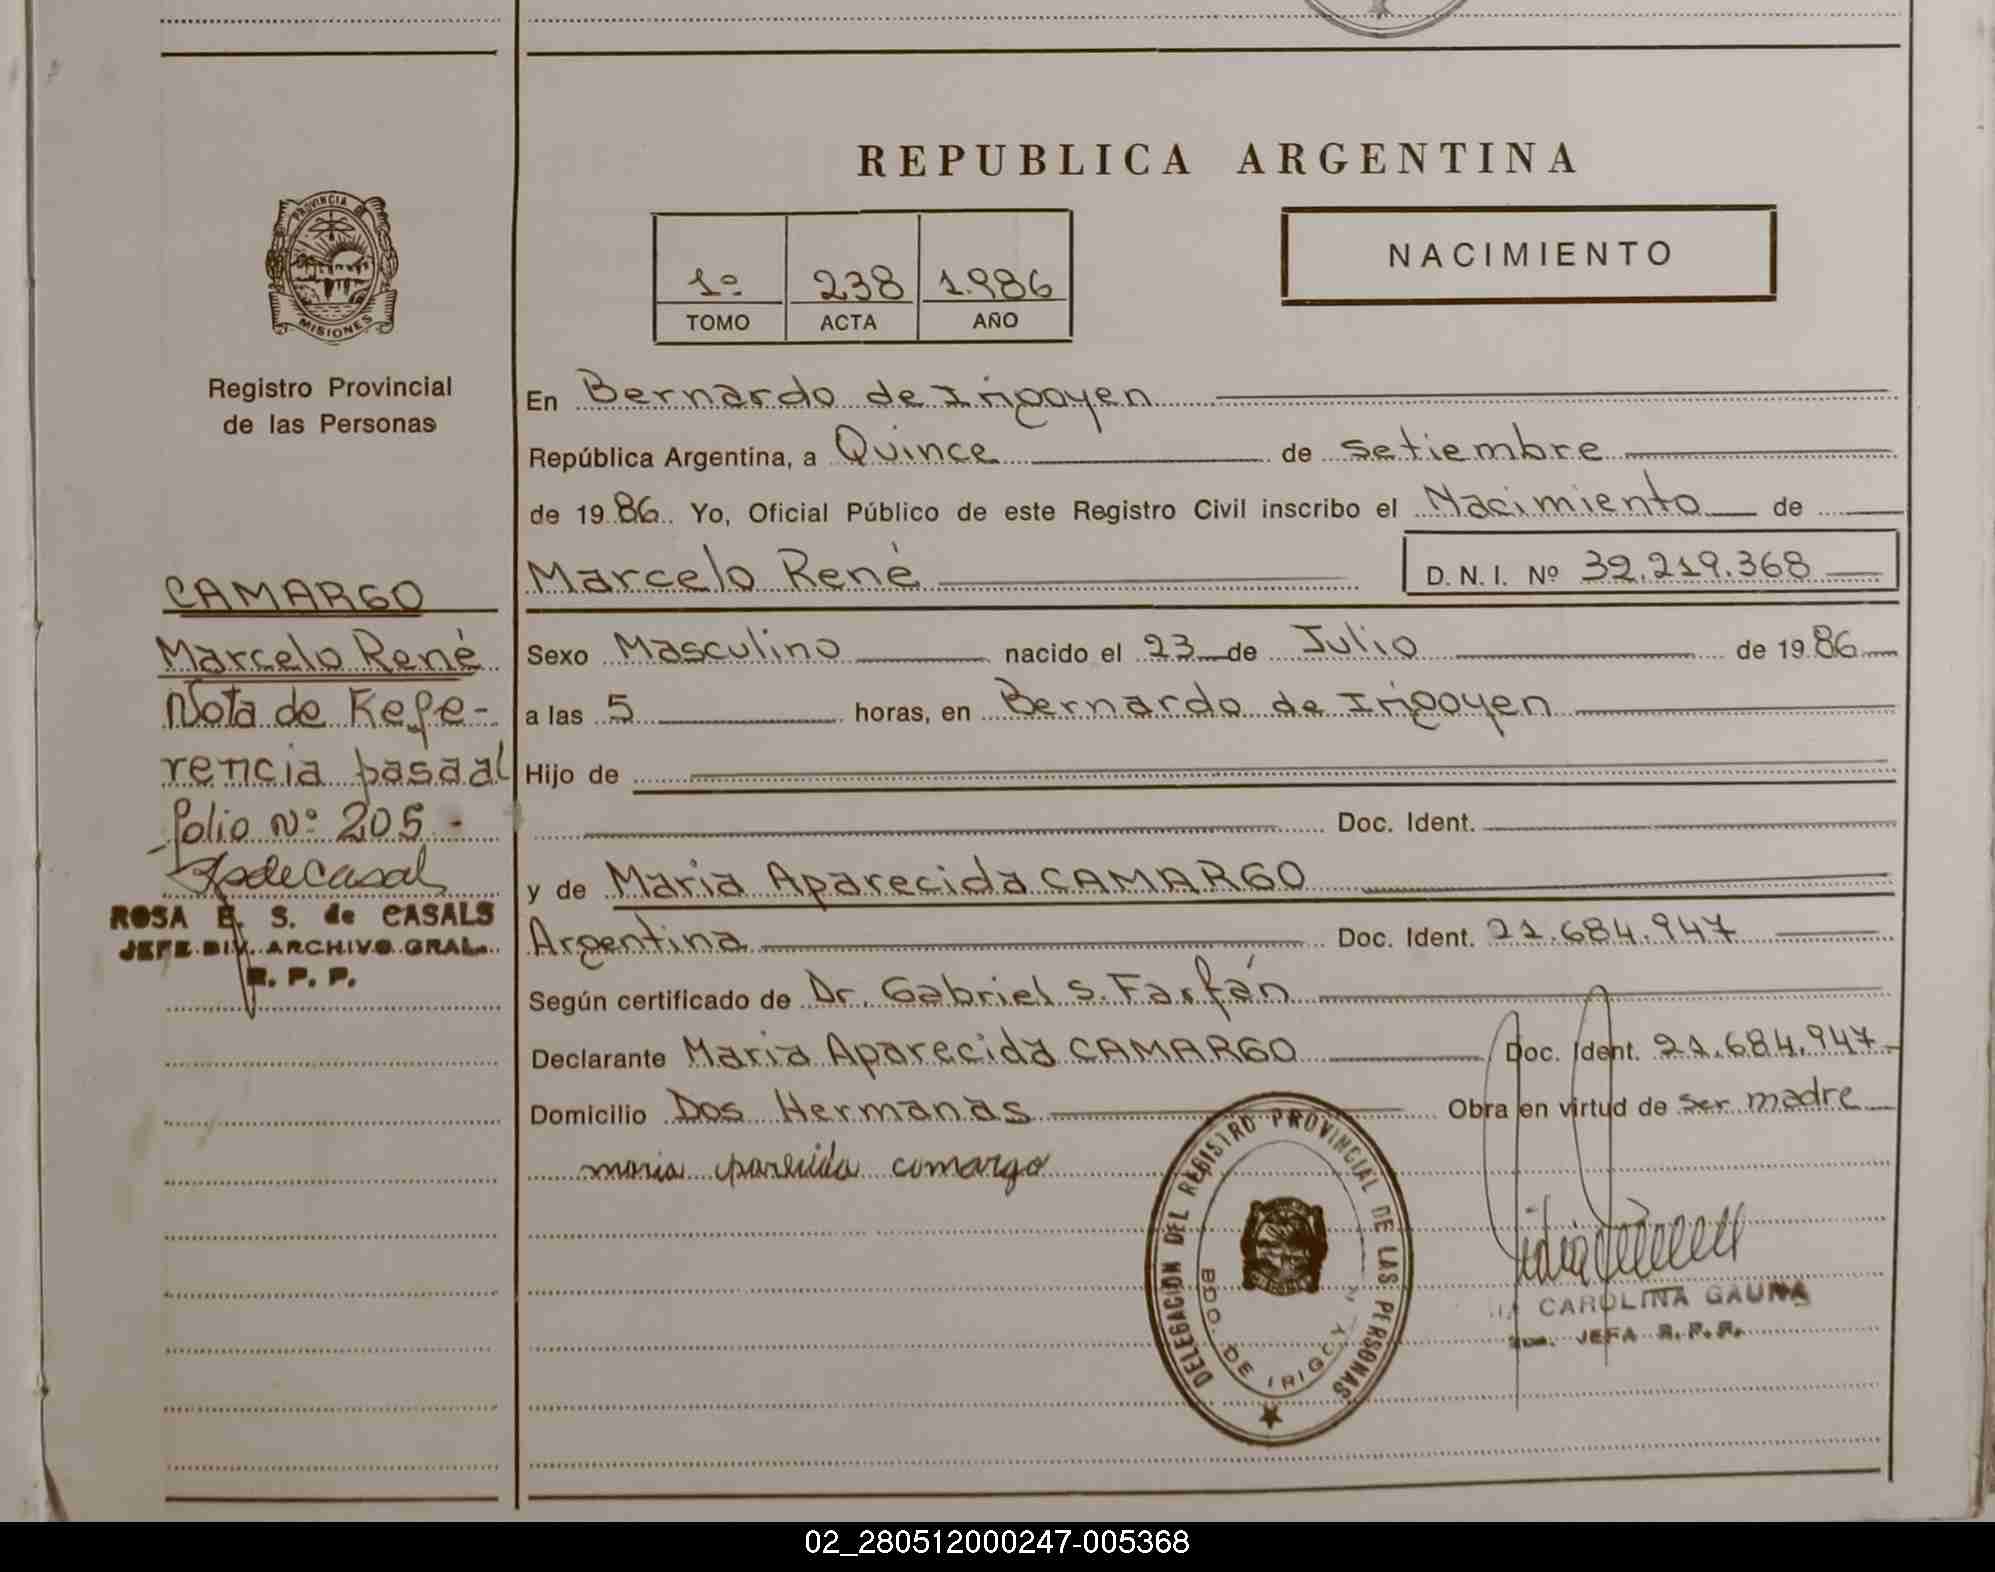 REPUBLICA ARGENTINA
PROVINCIA DE
MISIONES
Registro Provincial
de las Personas
1º 238 1.986
TOMO ACTA AÑO
NACIMIENTO
En Bernardo de Irigoyen
República Argentina, a Quince de setiembre
de 1986. Yo, Oficial Público de este Registro Civil inscribo el Nacimiento de
Marcelo René D.N.I. Nº 32.219.368
CAMARGO
Marcelo René
Nota de Refe-
rencia pasa al
folio Nº 205 -
ROSA E. S. de CASALS
JEFE DIV. ARCHIVO GRAL.
R. P. P.
Sexo Masculino nacido el 23 de Julio de 1986
a las 5 horas, en Bernardo de Irigoyen
Hijo de
Doc. Ident.
y de Maria Aparecida CAMARGO
Argentina Doc. Ident. 21.684.947
Según certificado de Dr. Gabriel S. Farfán
Declarante Maria Aparecida CAMARGO Doc. Ident. 21.684.947
Domicilio Dos Hermanas Obra en virtud de ser madre
maria aparecida camargo
DELEGACION DEL REGISTRO PROVINCIAL DE LAS PERSONAS
BDO. DE IRIGOYEN
CAROLINA GAUNA
JEFA R.P.P.
02_280512000247-005368